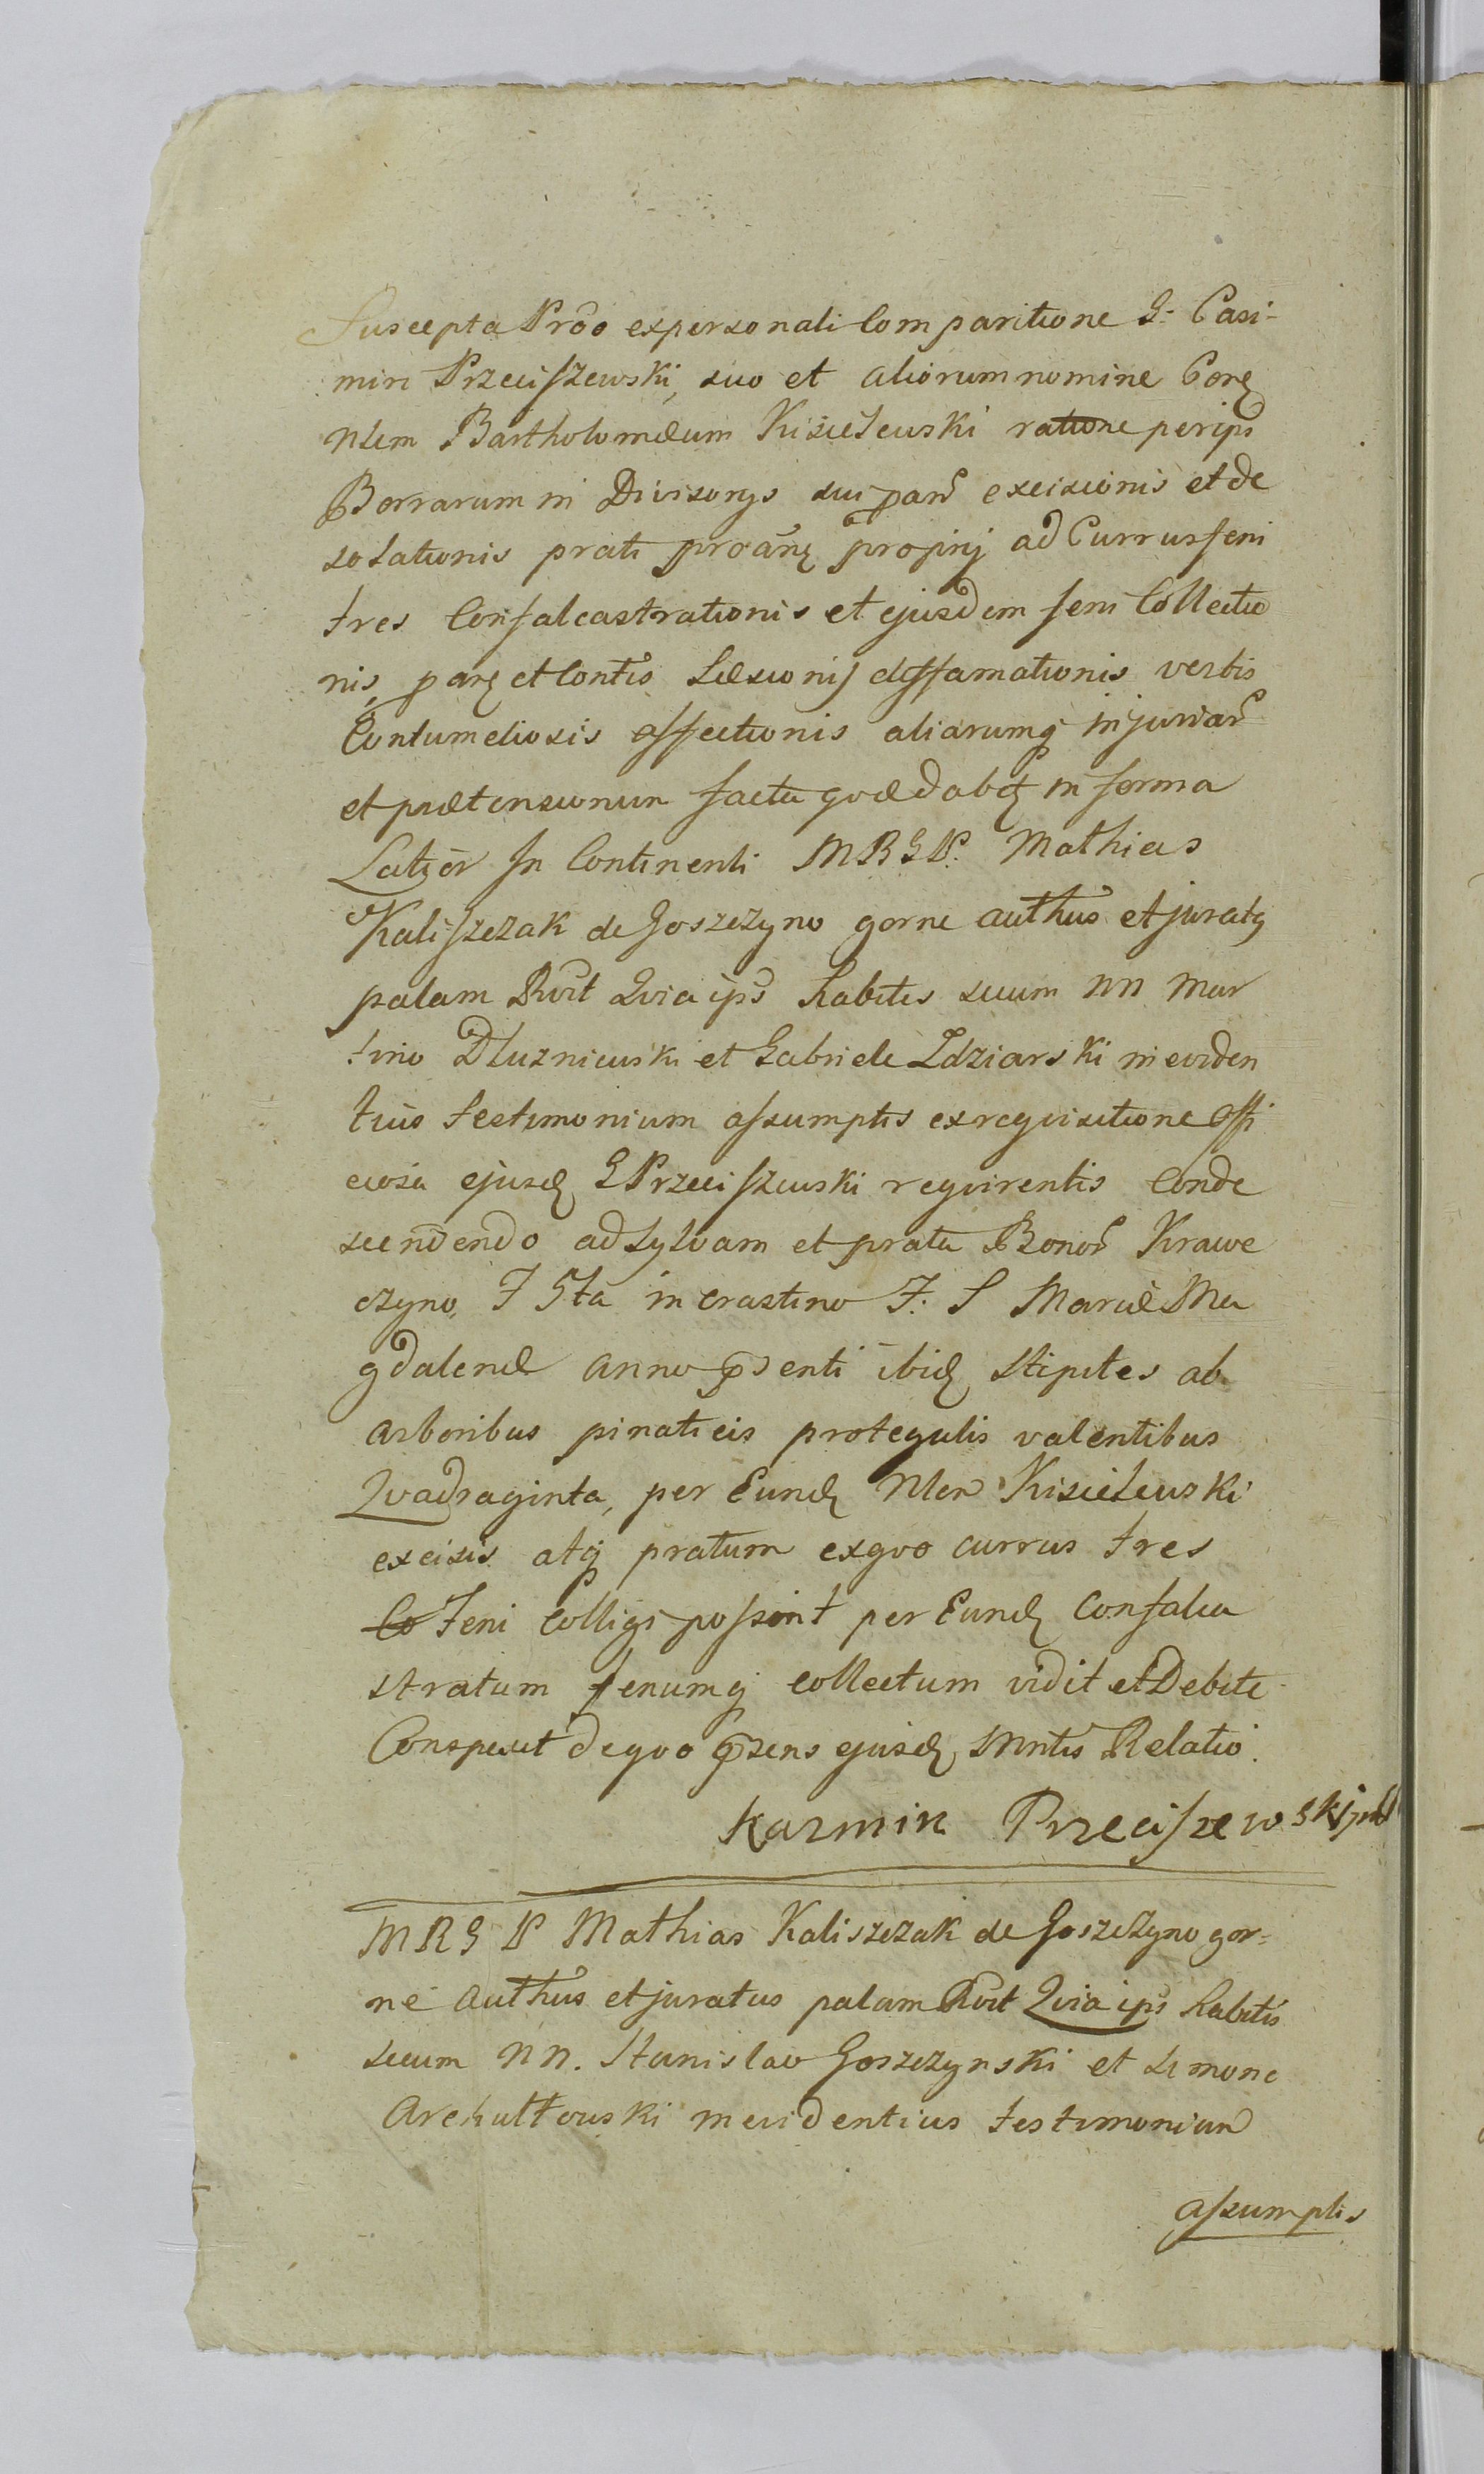 Suscepta Prõo ex personali Comparitione G: Casi-
miri Przeciszewski, suo et aliorum nomine Corą
Nlem Bartholomæum Kisielewski ratione per ips
Borrarum in Divisorys sui par excisionis et de
solationis prati pro anę proprij ad Currus feni
tres Confalcastrationis et ejusdem feni Collectio
nis, parę et Contis Læsionis deffamationis verbis
Contumeliosis affectionis aliarumq injuriar
et prætensionum facta qvæ dabq in forma
Latior In Continenti MRGP. Mathias
Kaliszczak de Goszczyno gorne authus et juratq
palam Rvit Qvia ips habitis secum NN Mar
tino Dluzniewski et Gabriele Idziarski in eviden
tius testimonium assumptis ex reqvisitione offi
ciosa ejusd G Przeciszewski reqvirentis Conde
scendendo ad sylvam et prata Bonor Krawe
czyno, F 5ta in crastino F: S Mariæ Ma
gdalenæ anno psenti ibid stipites ab
arboribus pinaticis pro tegulis valentibus
Qvadraginta, per Eund Nlem Kisielewski
excisis atq pratum ex qvo currus tres
Co Feni colligi possint per Eund Confalca
stratum fenumq collectum vidit et Debite
Conspexit de qvo psens ejusd Mntis Relatio.
Kazmirz Przeciszewski
MRG P Mathias Kaliszczak de Goszczyno gor=
ne authus et juratus palam Rvit Qvia ips habitis
secum NN. Stanislao Goszczynski et Simone
Archuttowski in evidentius testimonium
assumptis